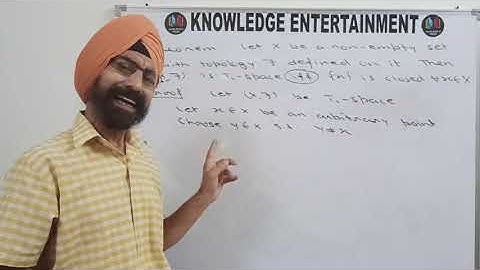 KNOWLEDGE ENTERTAINMENT
Let X be a non-empty set
with topology defined on it Then
is T₁-space iff {x} is closed ∀x∈X
Proof Let (X, T) be T₁-space
Let x∈X be an arbitrary point
Choose y∈X s.t. y≠x